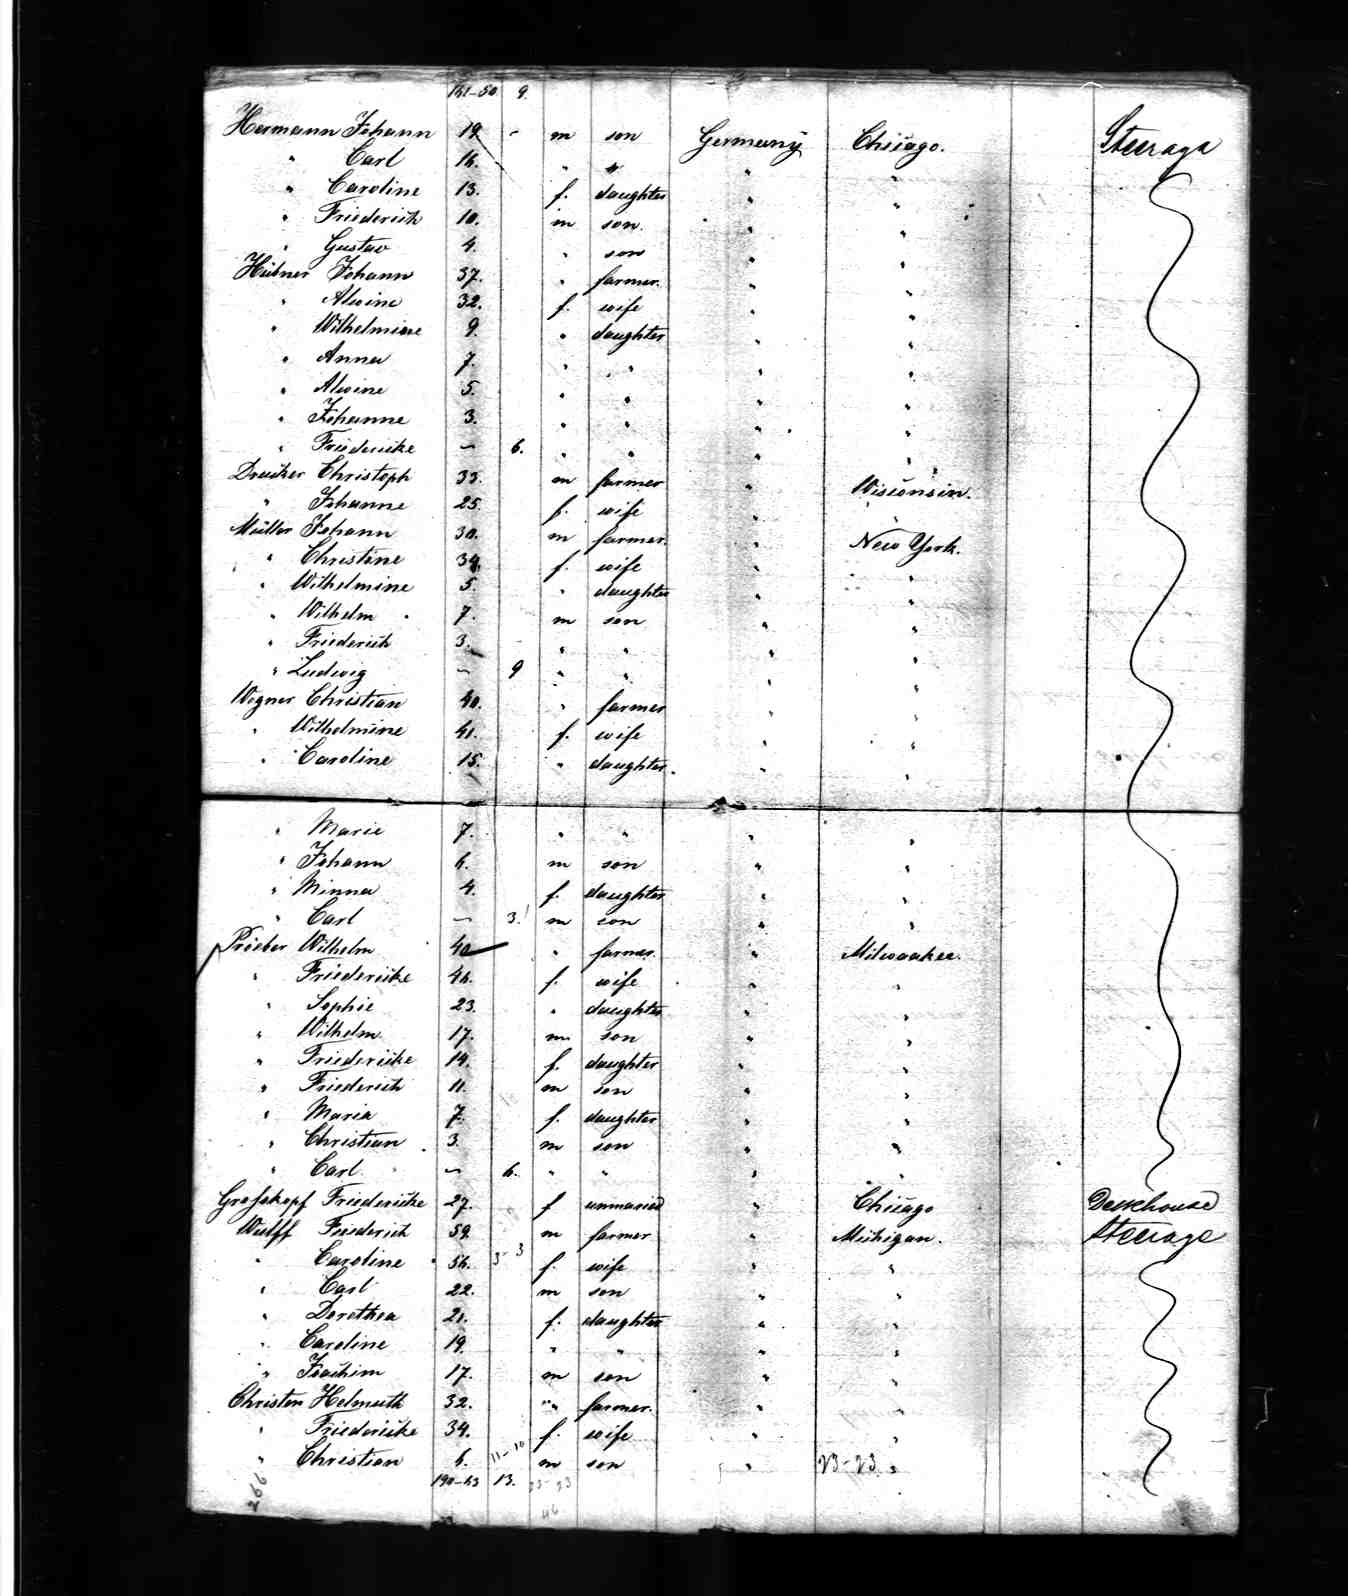 161-50 9.
Hermann Johann 19. - m son Germany Chicago. Steerage
" Carl 16. " " " "
" Caroline 13. f. daughter " "
" Friederich 10. m son. " "
" Gustav 4. " son " "
Hübner Johann 37. " farmer. " "
" Alwine 32. f. wife " "
" Wilhelmine 9. " daughter " "
" Anna 7. " " " "
" Alwine 5. " " " "
" Johanne 3. " " " "
" Friedericke - 6. " " " "
Christoph 33. m farmer " Wisconsin.
" Johanne 25. f. wife " "
Müller Johann 30. m farmer. " New York.
" Christine 34. f. wife " "
" Wilhelmine 5. " daughter " "
" Wilhelm 7. m son " "
" Friederich 3. " " " "
" Ludwig - 9 " " " "
Wegner Christian 40. " farmer " "
" Wilhelmine 41. f. wife " "
" Caroline 15. " daughter. " "
" Marie 7. " " " "
" Johann 6. m son " "
" Minna 4. f. daughter " "
" Carl - 3. m son " "
Wilhelm 40 " farmer. " Milwaukee.
" Friedericke 46. f. wife " "
" Sophie 23. " daughter " "
" Wilhelm 17. m son " "
" Friedericke 14. f. daughter " "
" Friederich 11. m son " "
" Maria 7. f. daughter " "
" Christian 3. m son " "
" Carl - 6. " " " "
Grosskopf Friedericke 27. f unmaried " Chicago Deckhouse
Wulff Friederich 59. m farmer " Michigan. Steerage
" Caroline 56. 3-3 f. wife " "
" Carl 22. m son " "
" Dorothea 21. f. daughter " "
" Caroline 19. " " " "
" Joachim 17. m son " "
Christen Helmuth 32. " farmer. " "
" Friedericke 34. f. wife " "
" Christian 6. 11-10 m son " 23-23 "
190-63 13. 23-23
266 46